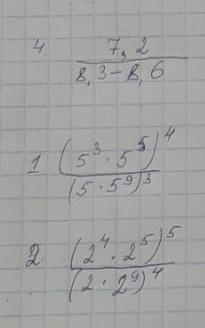 4 7,2 / 8,3-8,6
1 (5³·5⁵)⁴ / (5·5⁹)³
2 (2⁴·2⁵)⁵ / (2·2⁹)⁴